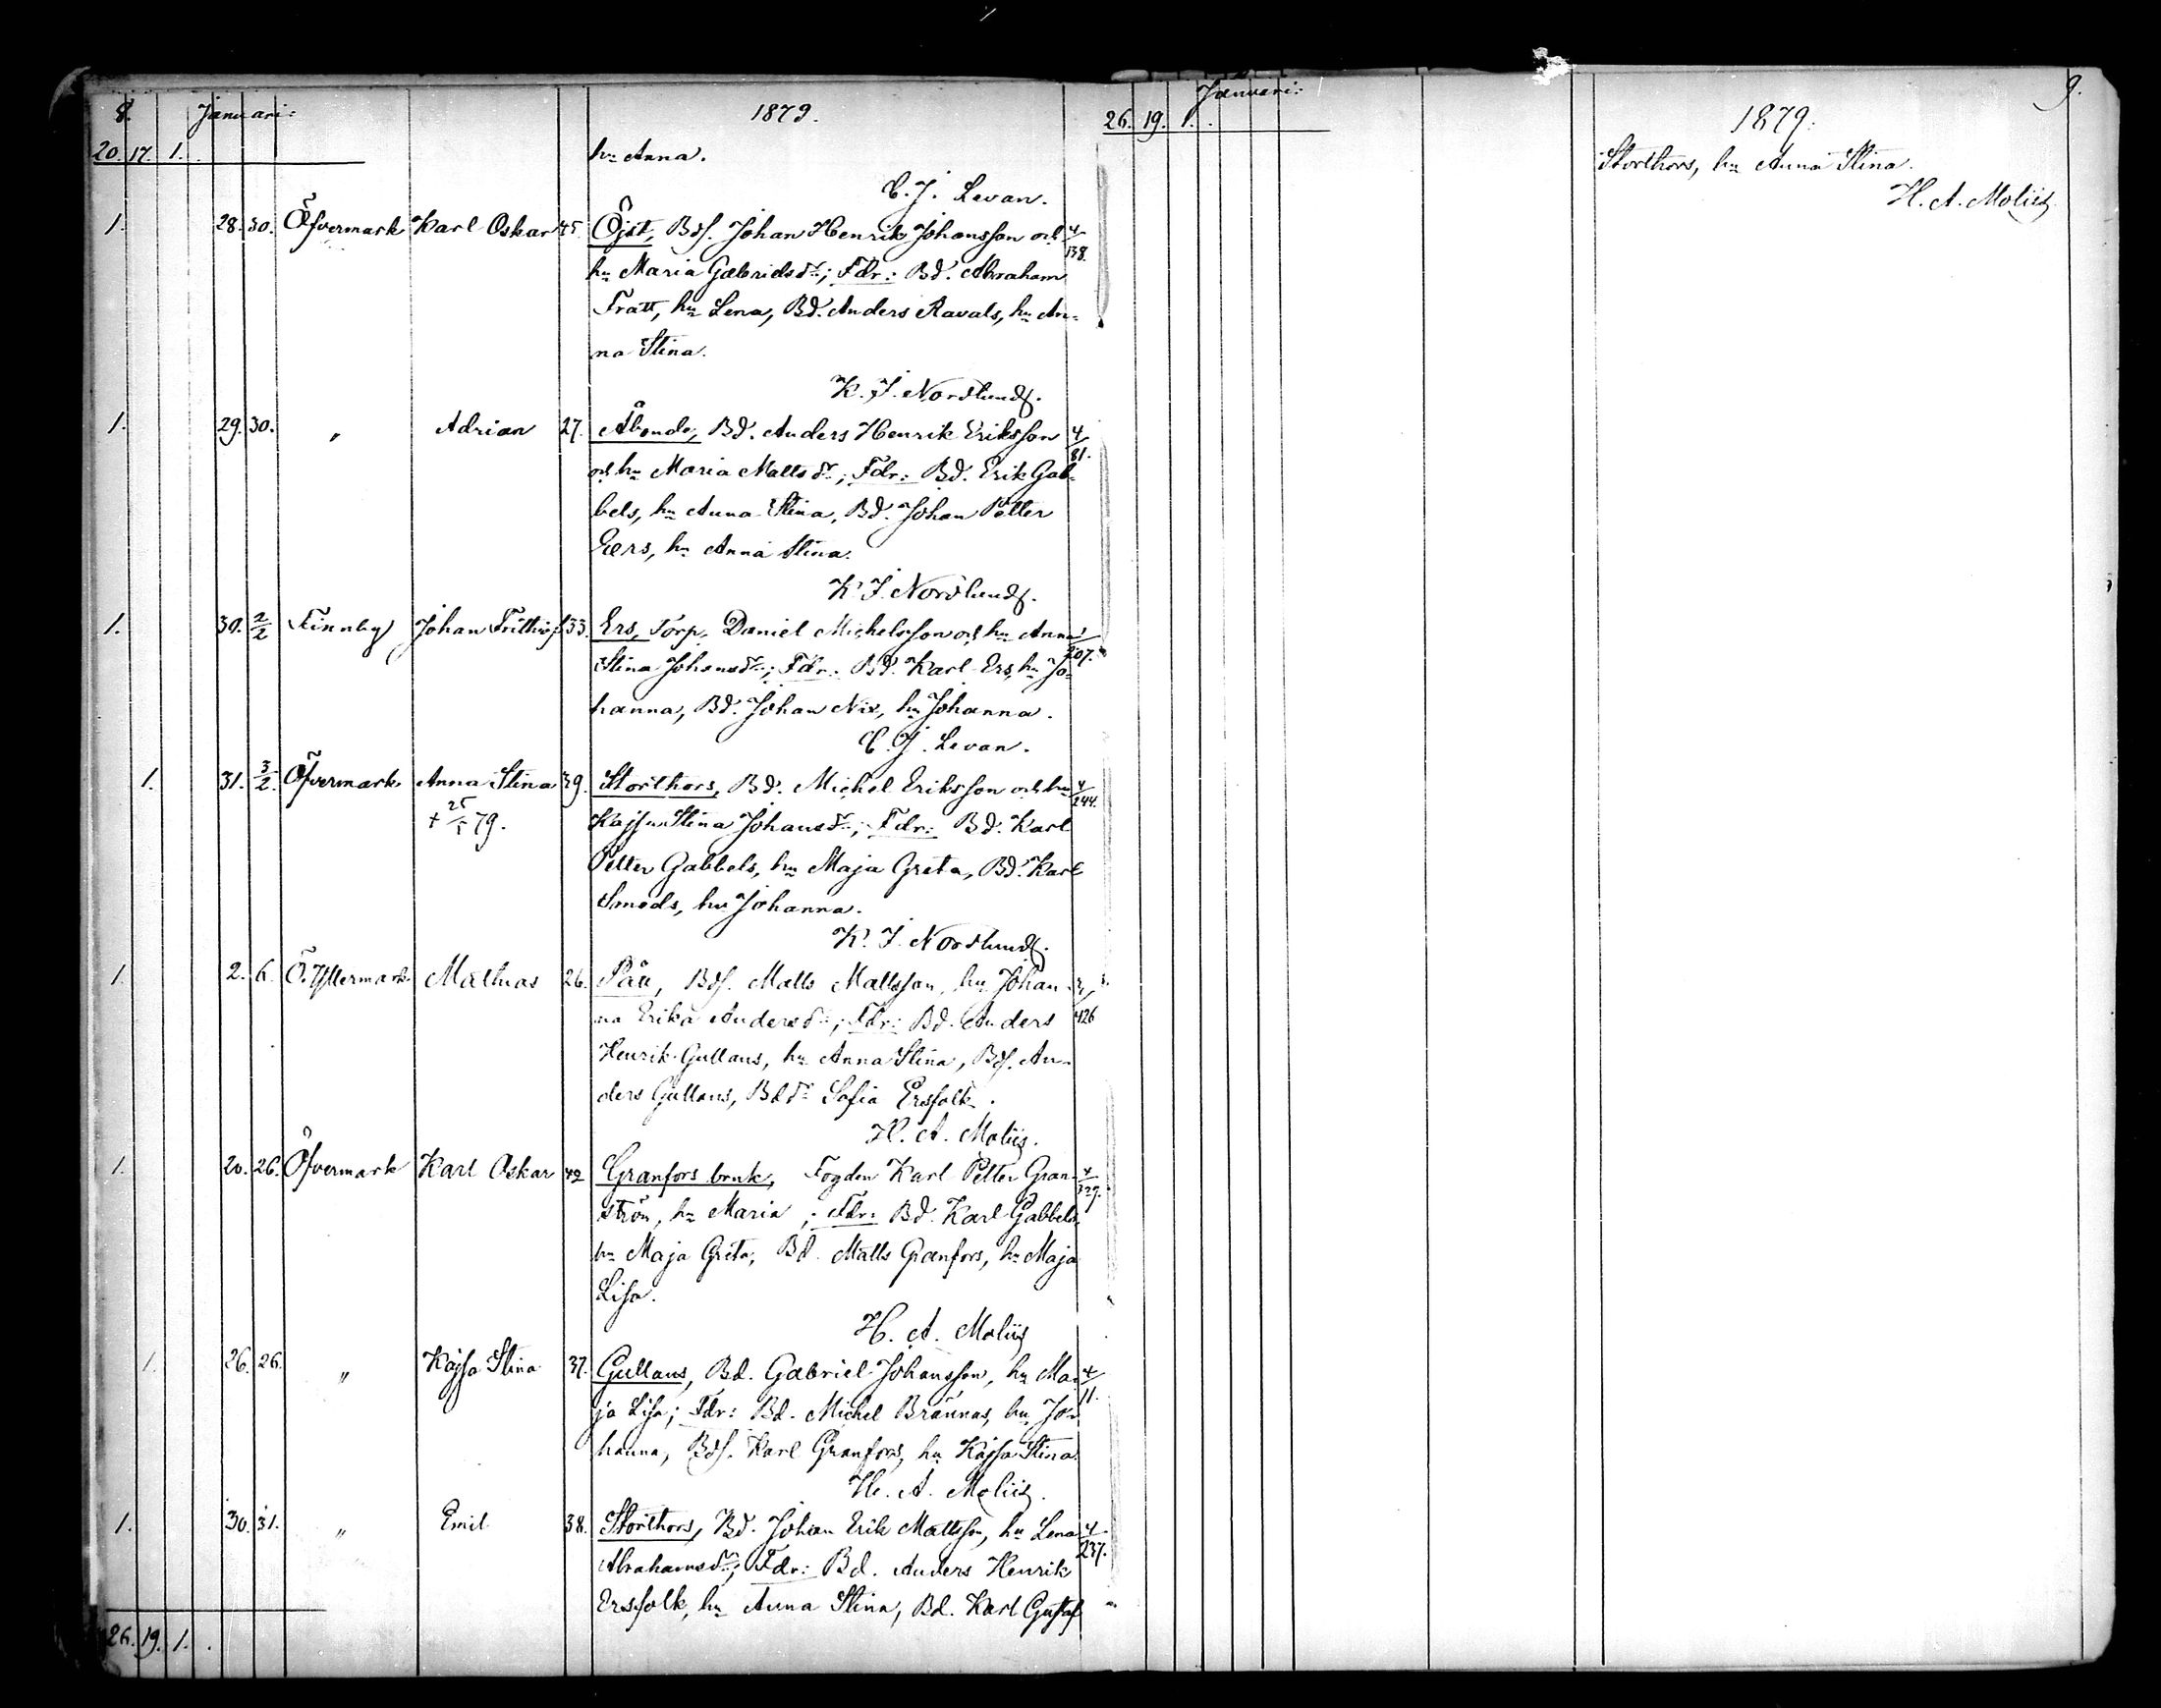 8. Januari: 1879.
20. 17. 1. hu Anna.
C. J. Levan.
1. 28. 30. Öfvermark Karl Oskar 45. Öjst, Bds. Johan Henrik Johansson och 4/138.
hu Maria Gabrielsdr; Fdr: Bd. Abraham
Trätt, hu Lena, Bd. Anders Ravals, hu An-
na Stina.
K. J. Nordlund.
1. 29. 30. " Adrian 27. Åbonde, Bd. Anders Henrik Eriksson 4/81.
och hu Maria Mattsdr; Fdr: Bd. Erik Gab-
bels, hu Anna Stina, Bd. Johan Petter
Eers, hu Anna Stina.
K. J. Nordlund.
1. 30. 2/2 Finnby Johan Frithiof 33. Ers, Torp. Daniel Michelsson och hu Anna /207.
Stina Johansdr; Fdr: Bd. Karl Ers, hu Jo-
hanna, Bd. Johan Nix, hu Johanna.
C. J. Levan.
1. 31. 3/2. Öfvermark Anna Stina 39. Storthors, Bd. Michel Eriksson och hu 4/244.
+ 25/5 79. Kajsa Stina Johansdr; Fdr: Bd. Karl
Petter Gabbels, hu Maja Greta, Bd. Karl
Smeds, hu Johanna.
K. J. Nordlund.
1. 2. 6. Ö. Yttermark Mathias 26. Påu, Bds. Matts Mattsson, hu Johan- 3/426
na Erika Andersdr; Fdr: Bd. Anders
Henrik Gullans, hu Anna Stina, Bds. An-
ders Gullans, Bddr Sofia Ersfolk.
H. A. Moliis.
1. 20. 26. Öfvermark Karl Oskar 42 Granfors bruk, Fogden Karl Petter Gran- 4/329.
ström, hu Maria ; Fdr: Bd. Karl Gabbels,
hu Maja Greta, Bd. Matts Granfors, hu Maja
Lisa.
H. A. Moliis
1. 26. 26. " Kajsa Stina 37. Gullans, Bd. Gabriel Johansson, hu Ma- 4/11.
ja Lisa; Fdr: Bd. Michel Brännas, hu Jo-
hanna, Bds. Karl Granfors, hu Kajsa Stina.
H. A. Moliis.
1. 30. 31. " Emil 38. Storthors, Bd. Johan Erik Mattsson, hu Lena 4/237.
Abrahamsdr; Fdr: Bd. Anders Henrik
Ersfolk, hu Anna Stina, Bd. Karl Gustaf
26. 19. 1.
Januari: 1879. 9.
26. 19. 1.
Storthors, hu Anna Stina.
H. A. Moliis